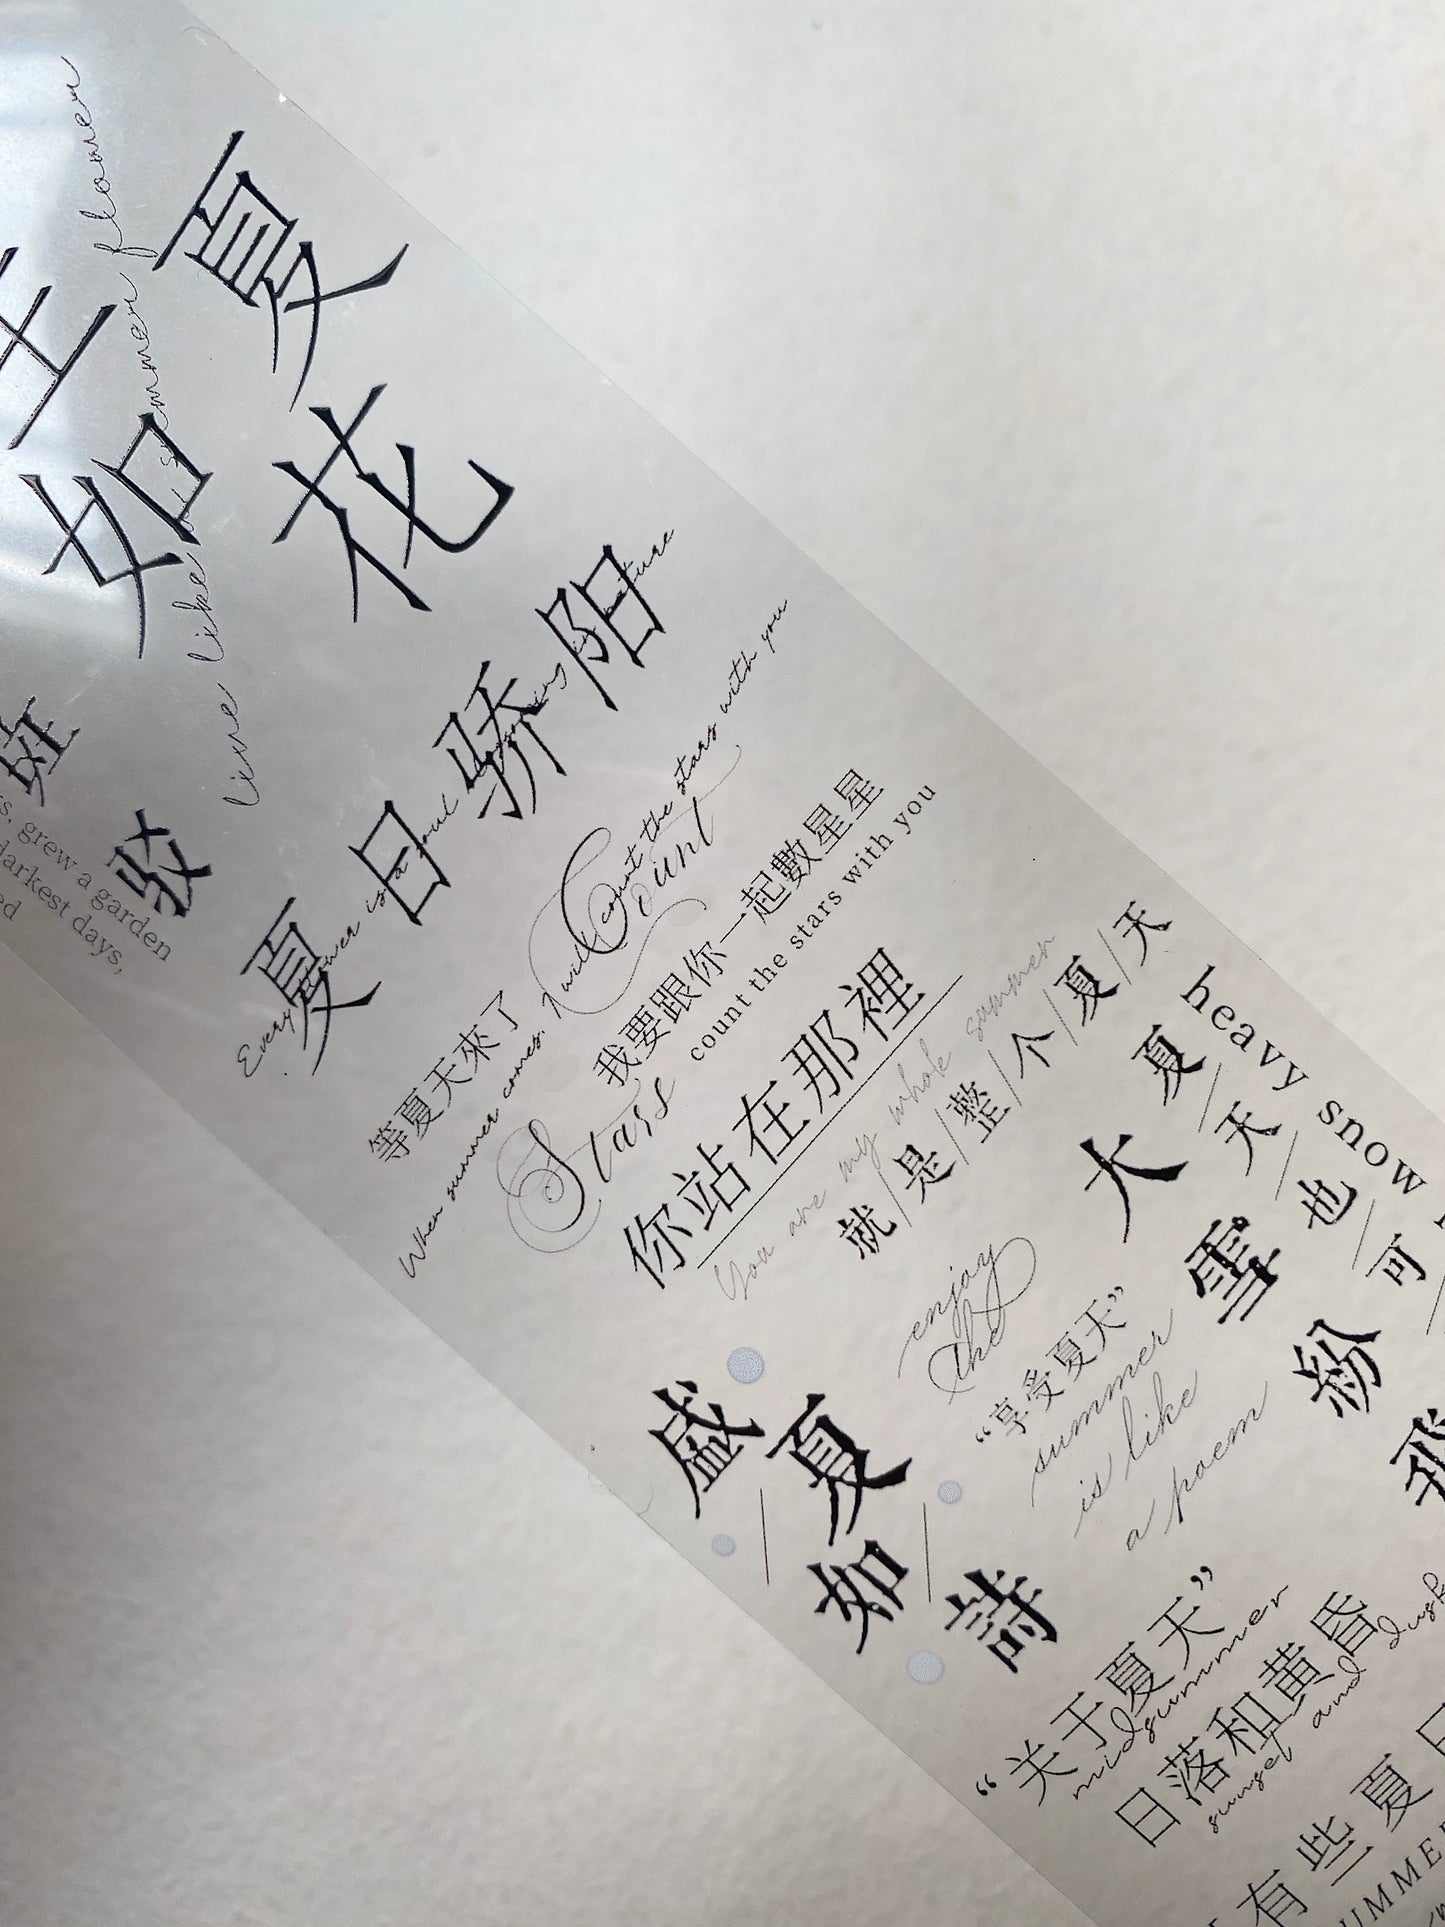 生如
夏花
live like a summer flower
驳
grew a garden
darkest days,
夏日骄阳
Every flower is a soul blossoming in nature
等夏天來了
When summer comes, I will count the stars with you
Count
我要跟你一起數星星
count the stars with you
Stars
你站在那裡
You are my whole summer
就/是/整/个/夏/天
enjoy
the
“享受夏天”
summer
is like
a poem
盛夏
如詩
heavy snow
夏/天/也/可
大雪紛飛
“关于夏天”
midsummer
日落和黄昏
sunset and dusk
有些夏日